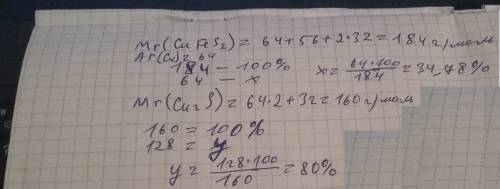 Mr(CuFeS₂) = 64+56+2·32 = 184 г/моль
Ar(Cu) = 64
184 – 100%
64 – x
x = 64·100/184 = 34,78%
Mr(Cu₂S) = 64·2+32 = 160 г/моль
160 = 100%
128 = y
y = 128·100/160 = 80%